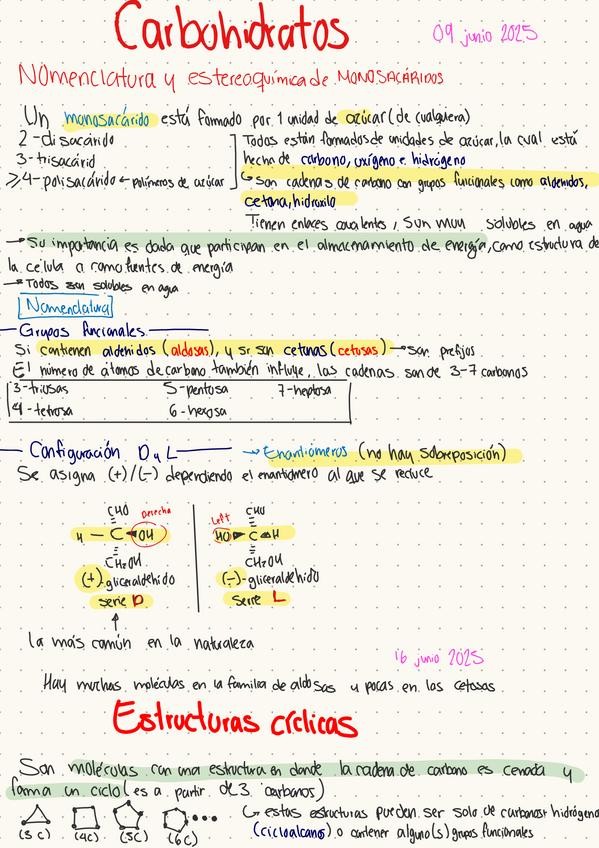 Carbohidratos
09 junio 2025
Nomenclatura y estereoquímica de MONOSACÁRIDOS
Un monosacárido está formado por 1 unidad de azúcar (de cualquiera)
2-disacárido
3-trisacárid
≥4-polisacárido ← polímeros de azúcar
Todos están formados de unidades de azúcar, la cual está
hecha de carbono, oxígeno e hidrógeno
↳ Son cadenas de carbono con grupos funcionales como aldehídos,
cetona, hidroxilo
Tienen enlaces covalentes, Sun muy solubles en agua
→ Su importancia es dada que participan en el almacenamiento de energía, como estructura de
la célula o como fuentes de energía
→ Todos son solubles en agua
Nomenclatura
Grupos funcionales
Si contienen aldehídos (aldosas), y si son cetonas (cetosas) → son prefijos
El número de átomos de carbono también influye, las cadenas son de 3-7 carbonos
3-triosas 5-pentosa 7-heptosa
4-tetrosa 6-hexosa
Configuración D y L → Enantiómeros (no hay sobreposición)
Se asigna (+)/(-) dependiendo el enantiómero al que se reduce
CHO Derecha
H — C ◄ OH
CH₂OH
(+)-gliceraldehído
serie D
Left CHO
HO ► C ◄ H
CH₂OH
(-)-gliceraldehído
Serie L
↑
la más común en la naturaleza
16 junio 2025
Hay muchas moléculas en la familia de aldosas y pocas en las cetosas
Estructuras cíclicas
Son moléculas con una estructura en donde la cadena de carbono es cerrada y
forma un ciclo (es a partir de 3 carbonos)
(3C) (4C) (5C) (6C) •••
↳ estas estructuras pueden ser solo de carbonos e hidrógeno
(cicloalcanos) o contener alguno(s) grupos funcionales